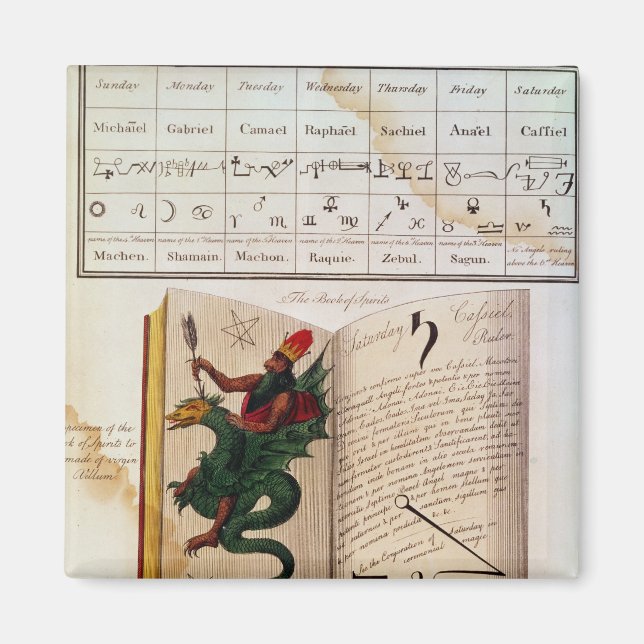 Sunday Monday Tuesday Wednesday Thursday Friday Saturday
Michaël Gabriel Camael Raphaël Sachiel Anaël Caffiel
name of the 4th Heaven name of the 1st Heaven name of the 5th Heaven name of the 2d Heaven name of the 6th Heaven name of the 3d Heaven No Angels ruling
Machen. Shamain. Machon. Raquie. Zebul. Sagun. above the 6th Heaven
The Book of Spirits
Saturday ♄ Cassiel.
Ruler.
Conjuro & confirmo super vos Cassiel, Macatori
Angeli fortes & potentis & per nomen
Adonai, Adonai, Adonai, Eie Eie Eie
Cados, Cados, Ima vel Ima, Saday, Ja, Sar
formatore Seculorum qui Septimo die
& per illum qui in bene placito
Israel in hereditatem observandum dedit
custodirent & Sanctificarent, ad
inde bonam in alio secula
& per nomina Angelorum servientium in
Septimo Angel magno & per
& per nomen Stellæ quæ
Saturnus & per sanctum sigillum
per nomina &c. &c.
See the Conjuration of Saturday, in
ceremonial magic
Specimen of the
Book of Spirits to
made of virgin
Vellum